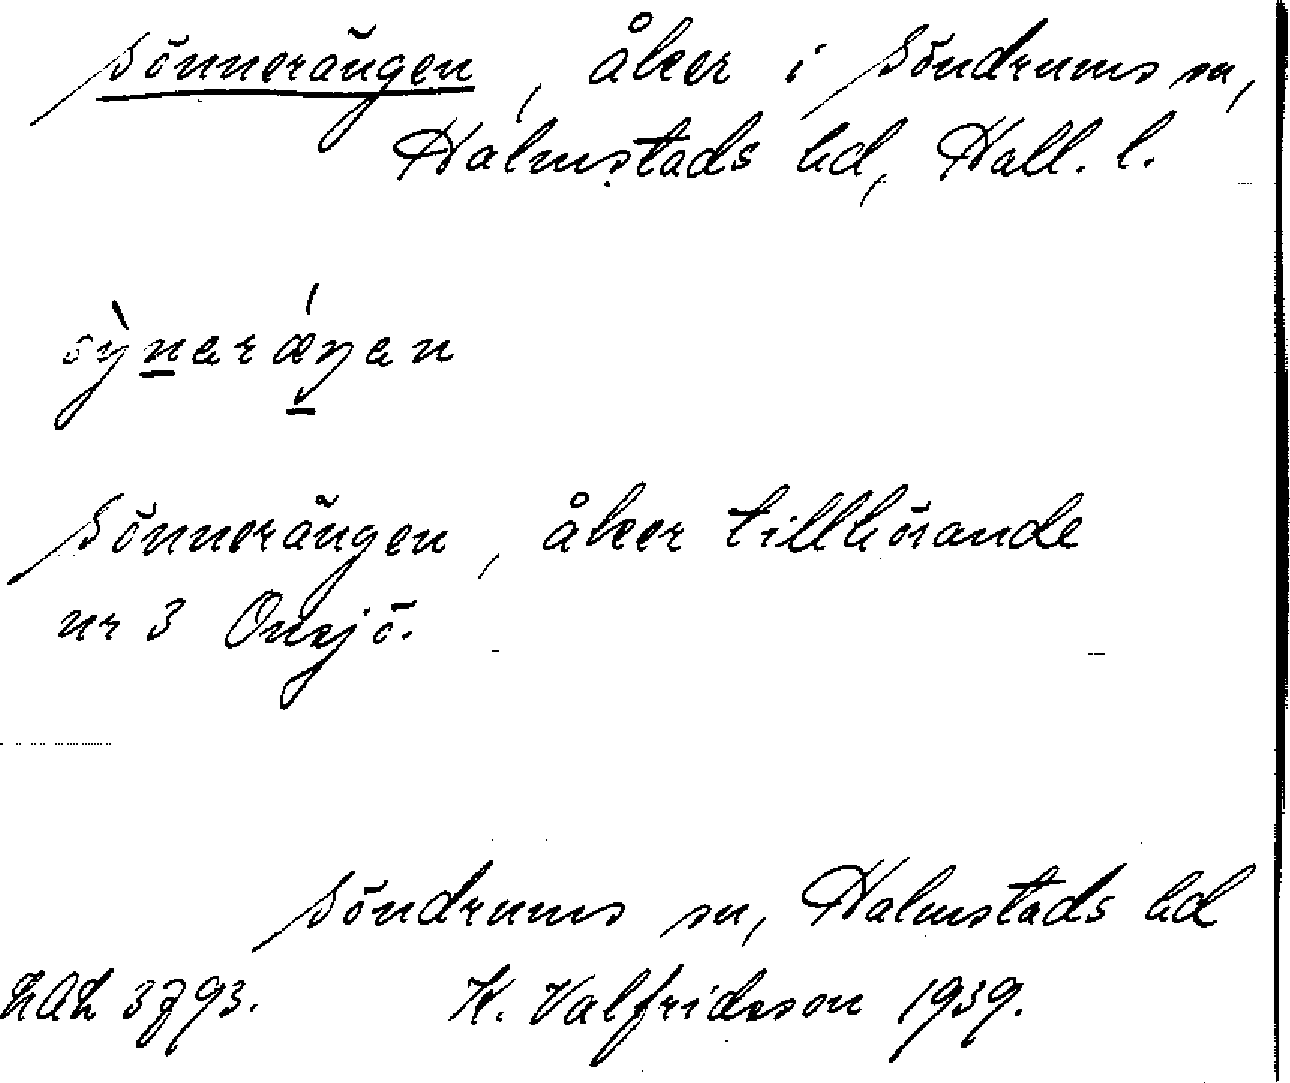 Sönnerängen, åker i Söndrums sn,
Halmstads hd, Hall. l.
sỳnaráŋan
Sönnerängen, åker tillhörande
nr 3 Onsjö.
Söndrums sn, Halmstads hd
3793. K. Valfridsson 1939.